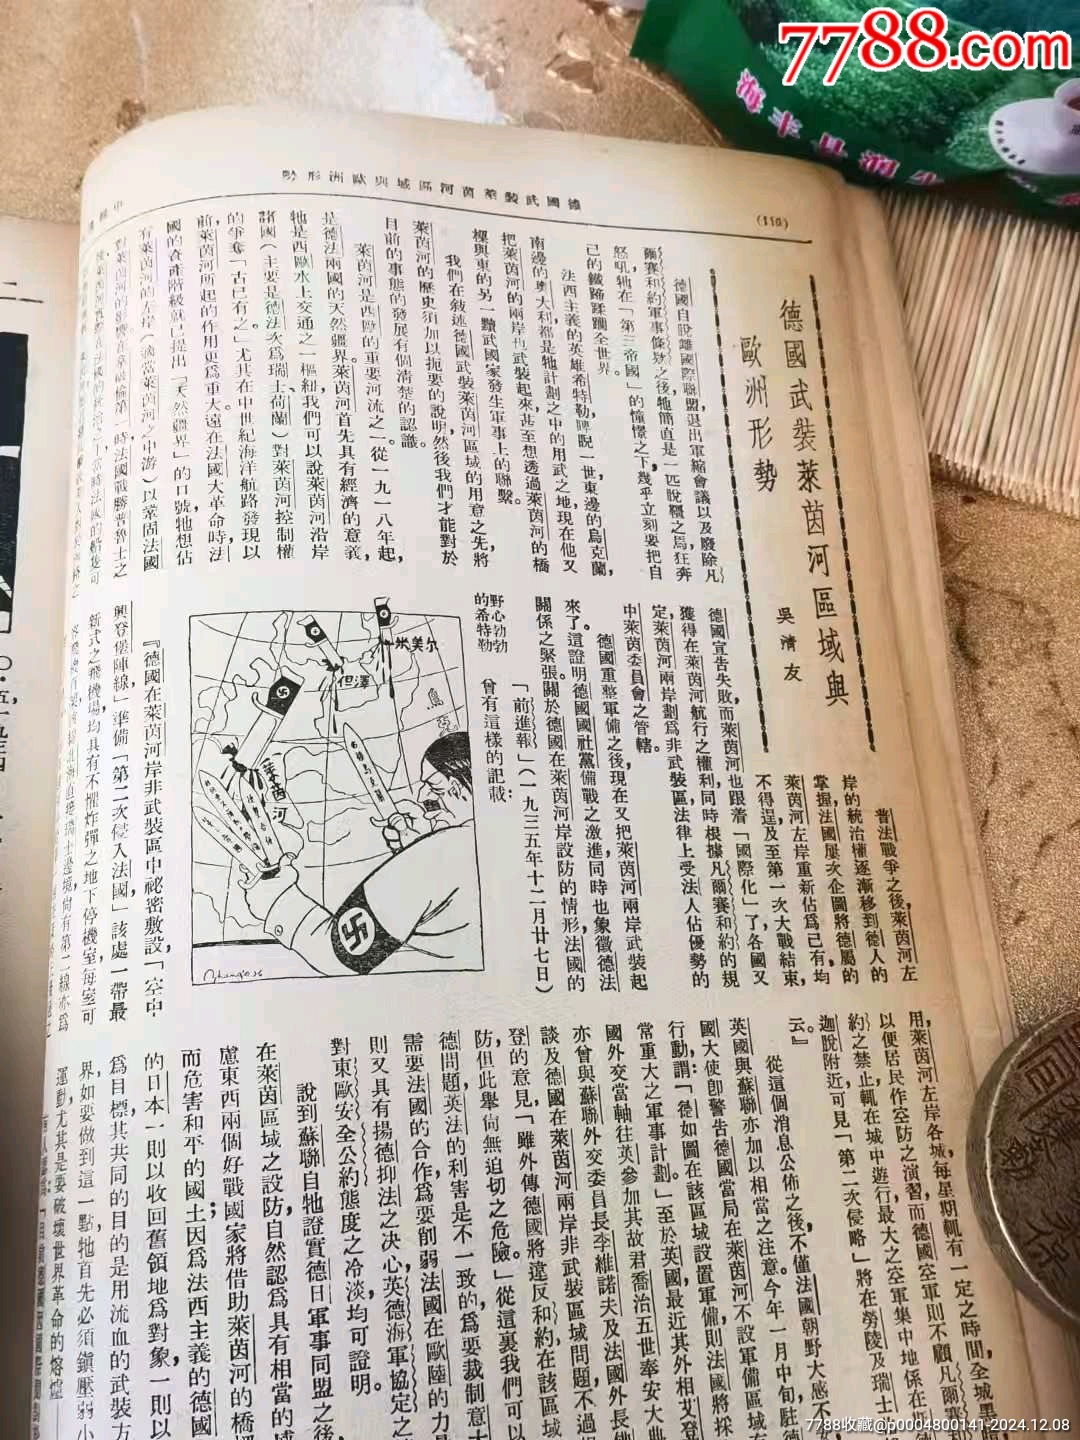 7788.com
海丰
(110)
德國武裝萊茵河區域與歐洲形勢
德國武裝萊茵河區域與
歐洲形勢
吳清友
德國自脫離國際聯盟,退出軍縮會議以及廢除凡
爾賽和約軍事條欵之後,牠簡直是一匹脫韁之馬,狂奔
怒吼,牠在「第三帝國」的憧憬之下,幾乎立刻要把自
己的鐵蹄蹂躪全世界。
法西主義的英雄希特勒睥睨一世,東邊的烏克蘭,
南邊的奧大利都是牠計劃之中的用武之地,現在他又
把萊茵河的兩岸也武裝起來,甚至想透過萊茵河的橋
樑與東的另一黷武國家發生軍事上的聯繫。
我們在敘述德國武裝萊茵河區域的用意之先,將
萊茵河的歷史須加以扼要的說明,然後我們才能對於
目前的事態的發展有個清楚的認識。
萊茵河是西歐的重要河流之一,從一九一八年起,
是德法兩國的天然疆界。萊茵河首先具有經濟的意義,
牠是西歐水上交通之一樞紐,我們可以說萊茵河沿岸
諸國(主要是德法,次為瑞士、荷蘭)對萊茵河控制權
的爭奪「古已有之」尤其在中世紀海洋航路發現以
前,萊茵河所起的作用更為重大。遠在法國大革命時,法
國的資產階級就已提出「天然疆界」的口號,牠想佔
有萊茵河的左岸(適當萊茵河之中游)以鞏固法國
普法戰爭之後,萊茵河左
岸的統治權逐漸移到德人的
掌握,法國屢次企圖將德屬的
萊茵河左岸重新佔為己有,均
不得逞,及至第一次大戰結束,
德國宣告失敗,而萊茵河也跟着「國際化」了,各國又
獲得在萊茵河航行之權利,同時根據凡爾賽和約的規
定,萊茵河兩岸劃為非武裝區,法律上受法人佔優勢的
中萊茵委員會之管轄。
德國重整軍備之後,現在又把萊茵河兩岸武裝起
來了。這證明德國國社黨備戰之激進,同時也象徵德法
關係之緊張。關於德國在萊茵河岸設防的情形,法國的
「前進報」(一九三五年十二月廿七日)
曾有這樣的記載:
野心勃勃
的希特勒
米美尔
但澤
萊茵河
西歐烏克蘭
『德國在萊茵河岸非武裝區中祕密敷設,「空中
興登堡陣線」準備「第二次侵入法國」該處一帶最
新式之飛機場,均具有不懼炸彈之地下停機室,每室可
用,萊茵河左岸各城,每星期輒有一定之時間,全城黑暗,
以便居民作空防之演習,而德國空軍則不顧凡爾賽
約之禁止,輒在城中遊行,最大之空軍集中地係在
迦脫附近,可見「第二次侵略」將在勞陵及瑞士
云。』
從這個消息公佈之後,不僅法國朝野大感不
英國與蘇聯亦加以相當之注意。今年一月中旬,駐德
國大使卽警告德國當局在萊茵河不設軍備區域
行動,謂:「德如圖在該區域設置軍備,則法國將採
常重大之軍事計劃。」至於英國,最近其外相艾登
國外交當軸往英參加其故君喬治五世奉安大典
亦曾與蘇聯外交委員長李維諾夫及法國外長佛
談及德國在萊茵河兩岸非武裝區域問題,不過
登的意見,「雖外傳德國將違反和約在該區域
防,但此舉尙無迫切之危險。」從這裏我們可以
德問題,英法的利害是不一致的,為要裁制意大
需要法國的合作,為要削弱法國在歐陸的力
則又具有揚德抑法之決心,英德海軍協定之
對東歐安全公約態度之冷淡,均可證明。
說到蘇聯,自牠證實德日軍事同盟之後,
在萊茵區域之設防,自然認為具有相當的
慮東西兩個好戰國家將借助萊茵河的橋
而危害和平的國土,因為法西主義的德國
的日本一則以收回舊領地為對象,一則以
為目標,其共同的目的是用流血的武裝方
界,如要做到這一點,牠首先必須鎮壓弱小
運動,尤其是要破壞世界革命的熔爐——
7788收藏@p0004800141-2024.12.08